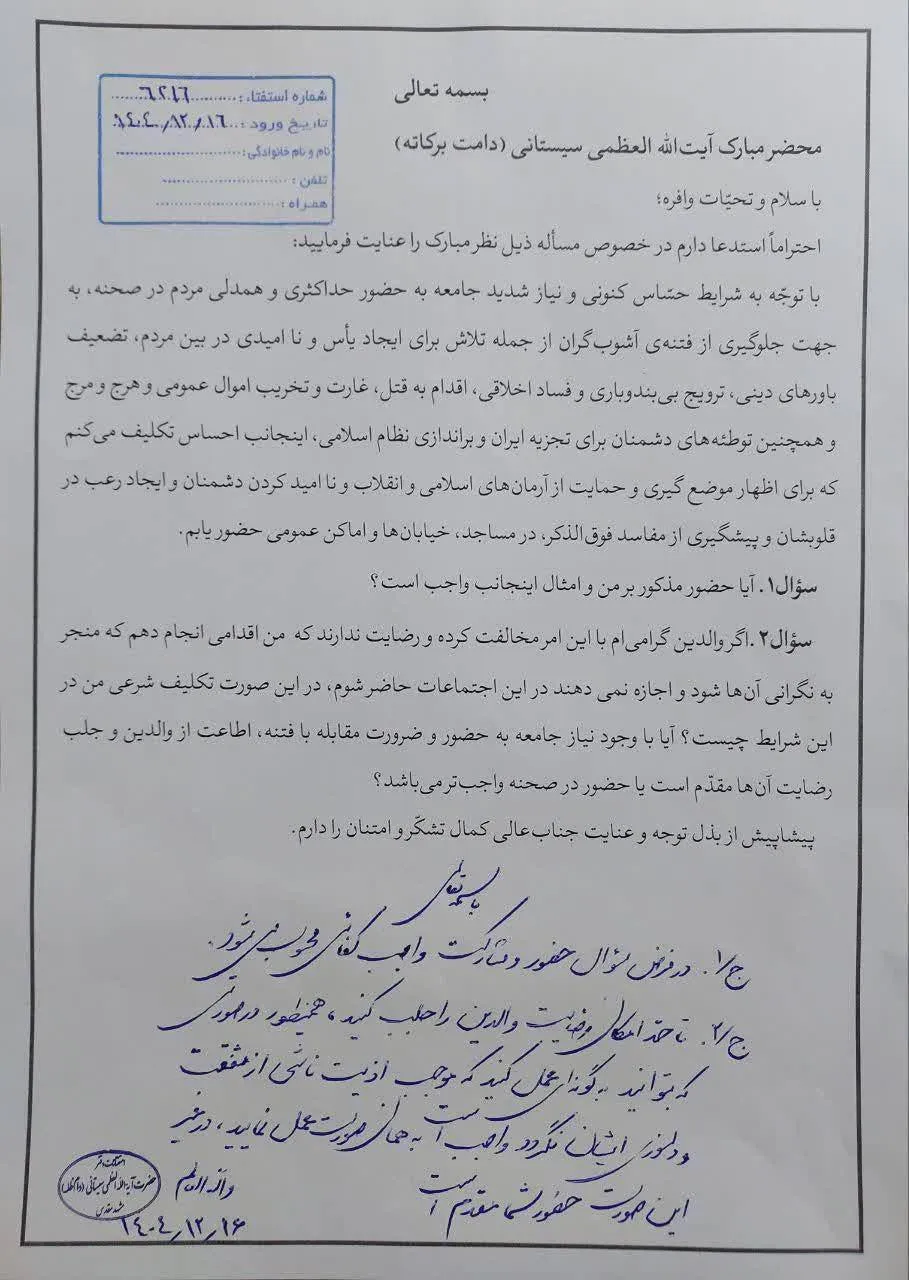 بسمه تعالی
شماره استفتاء : ۶۲۱۶
تاریخ ورود : ۱۴۰۴/۱۲/۱۶
نام و نام خانوادگی:
تلفن :
همراه :
محضر مبارک آیت‌الله العظمی سیستانی (دامت برکاته)
با سلام و تحیّات وافره؛
احتراماً استدعا دارم در خصوص مسأله ذیل نظر مبارک را عنایت فرمایید:
با توجّه به شرایط حسّاس کنونی و نیاز شدید جامعه به حضور حداکثری و همدلی مردم در صحنه، به
جهت جلوگیری از فتنه‌ی آشوب‌گران از جمله تلاش برای ایجاد یأس و نا امیدی در بین مردم، تضعیف
باورهای دینی، ترویج بی‌بندوباری و فساد اخلاقی، اقدام به قتل، غارت و تخریب اموال عمومی و هرج و مرج
و همچنین توطئه‌های دشمنان برای تجزیه ایران و براندازی نظام اسلامی، اینجانب احساس تکلیف می‌کنم
که برای اظهار موضع گیری و حمایت از آرمان‌های اسلامی و انقلاب و نا امید کردن دشمنان و ایجاد رعب در
قلوبشان و پیشگیری از مفاسد فوق‌الذکر، در مساجد، خیابان‌ها و اماکن عمومی حضور یابم.
سؤال۱. آیا حضور مذکور بر من و امثال اینجانب واجب است؟
سؤال۲. اگر والدین گرامی‌ام با این امر مخالفت کرده و رضایت ندارند که من اقدامی انجام دهم که منجر
به نگرانی آن‌ها شود و اجازه نمی دهند در این اجتماعات حاضر شوم، در این صورت تکلیف شرعی من در
این شرایط چیست؟ آیا با وجود نیاز جامعه به حضور و ضرورت مقابله با فتنه، اطاعت از والدین و جلب
رضایت آن‌ها مقدّم است یا حضور در صحنه واجب‌تر می‌باشد؟
پیشاپیش از بذل توجه و عنایت جناب‌عالی کمال تشکّر و امتنان را دارم.
باسمه تعالی
ج/۱. در فرض سؤال حضور و مشارکت واجب کفائی محسوب می شود.
ج/۲. تا حدّ امکان رضایت والدین را جلب کنید، همینطور در صورتی
که بتوانید به گونه‌ای عمل کنید که موجب اذیت ناشی از شفقت
و دلسوزی ایشان نگردد واجب است به همان صورت عمل نمایید، در غیر
این صورت حضور شما مقدم است
والله العالم
استفتائات دفتر
حضرت آیة الله العظمی سیستانی (دام ظله)
مشهد مقدس
۱۴۰۴/۱۲/۱۶